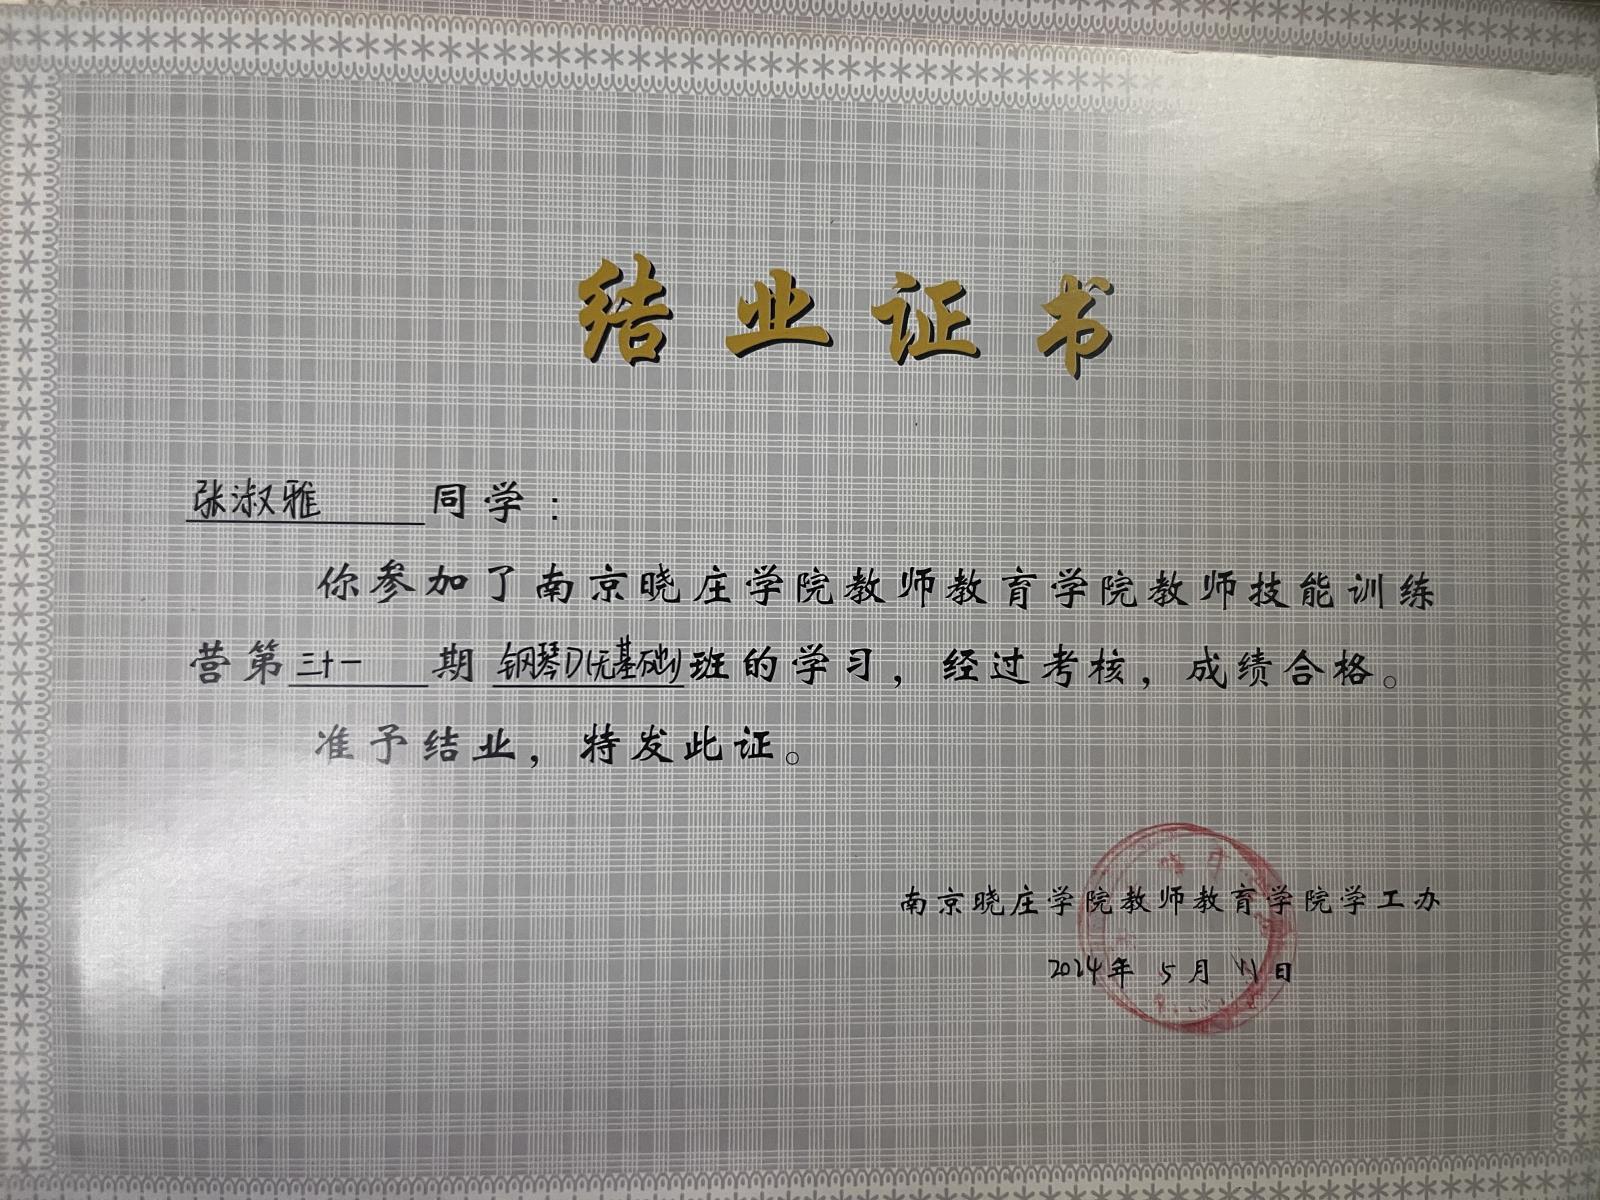 结业证书
张淑雅 同学：
你参加了南京晓庄学院教师教育学院教师技能训练
营第三十一期钢琴D(无基础)班的学习，经过考核，成绩合格。
准予结业，特发此证。
南京晓庄学院教师教育学院学工办
2024年5月11日